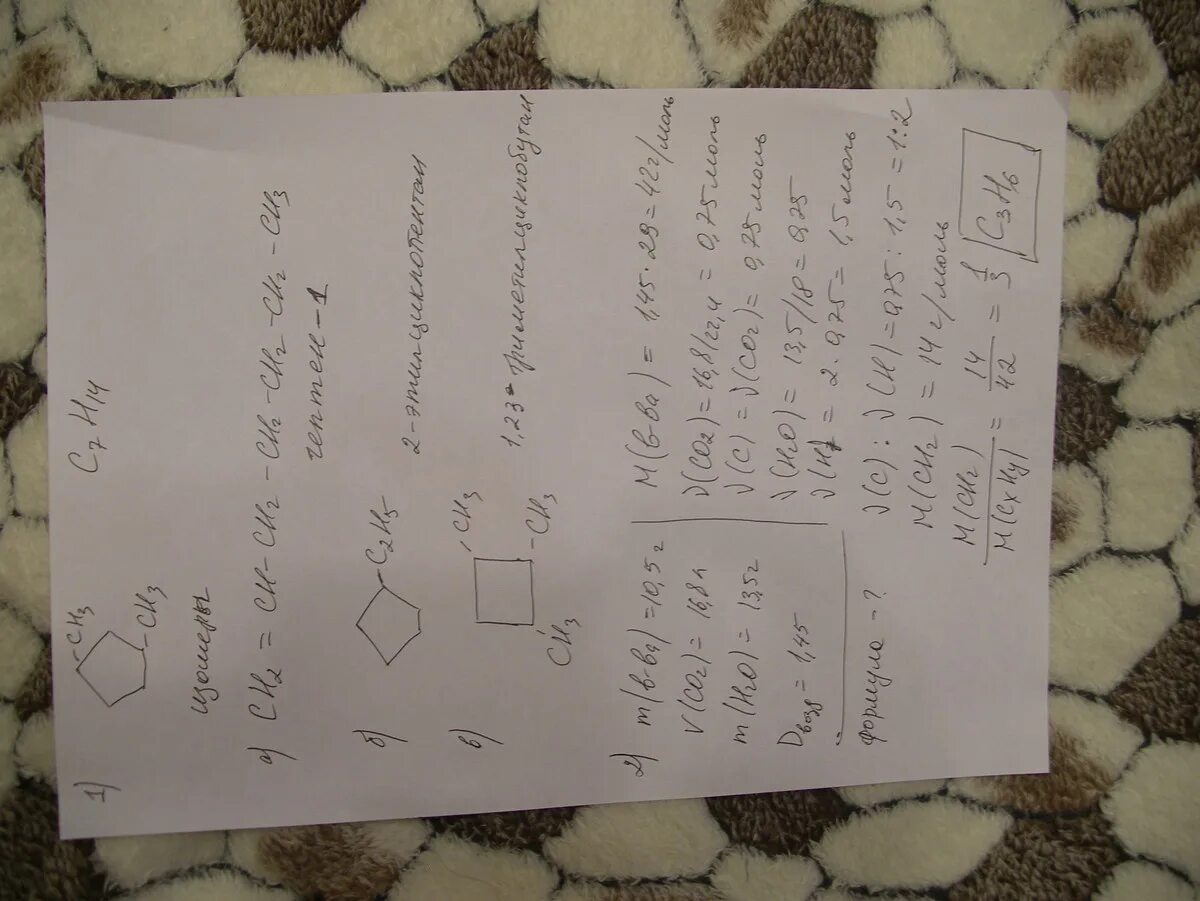 1) C₇H₁₄
CH₃
CH₃
изомеры
а) CH₂ = CH - CH₂ - CH₂ - CH₂ - CH₂ - CH₃
гептен-1
б) C₂H₅
2-этилциклопентан
в) CH₃
CH₃
CH₃
1,23-триметилциклобутан
2) m(в-ва) = 10,5 г
V(CO₂) = 16,8 л
m(H₂O) = 13,5 г
Dвозд = 1,45
Формула - ?
M(в-ва) = 1,45 · 29 = 42 г/моль
ν(CO₂) = 16,8/22,4 = 0,75 моль
ν(C) = ν(CO₂) = 0,75 моль
ν(H₂O) = 13,5/18 = 0,75
ν(H) = 2 · 0,75 = 1,5 моль
ν(C) : ν(H) = 0,75 : 1,5 = 1:2
M(CH₂) = 14 г/моль
M(CH₂)/M(CxHy) = 14/42 = 1/3 C₃H₆